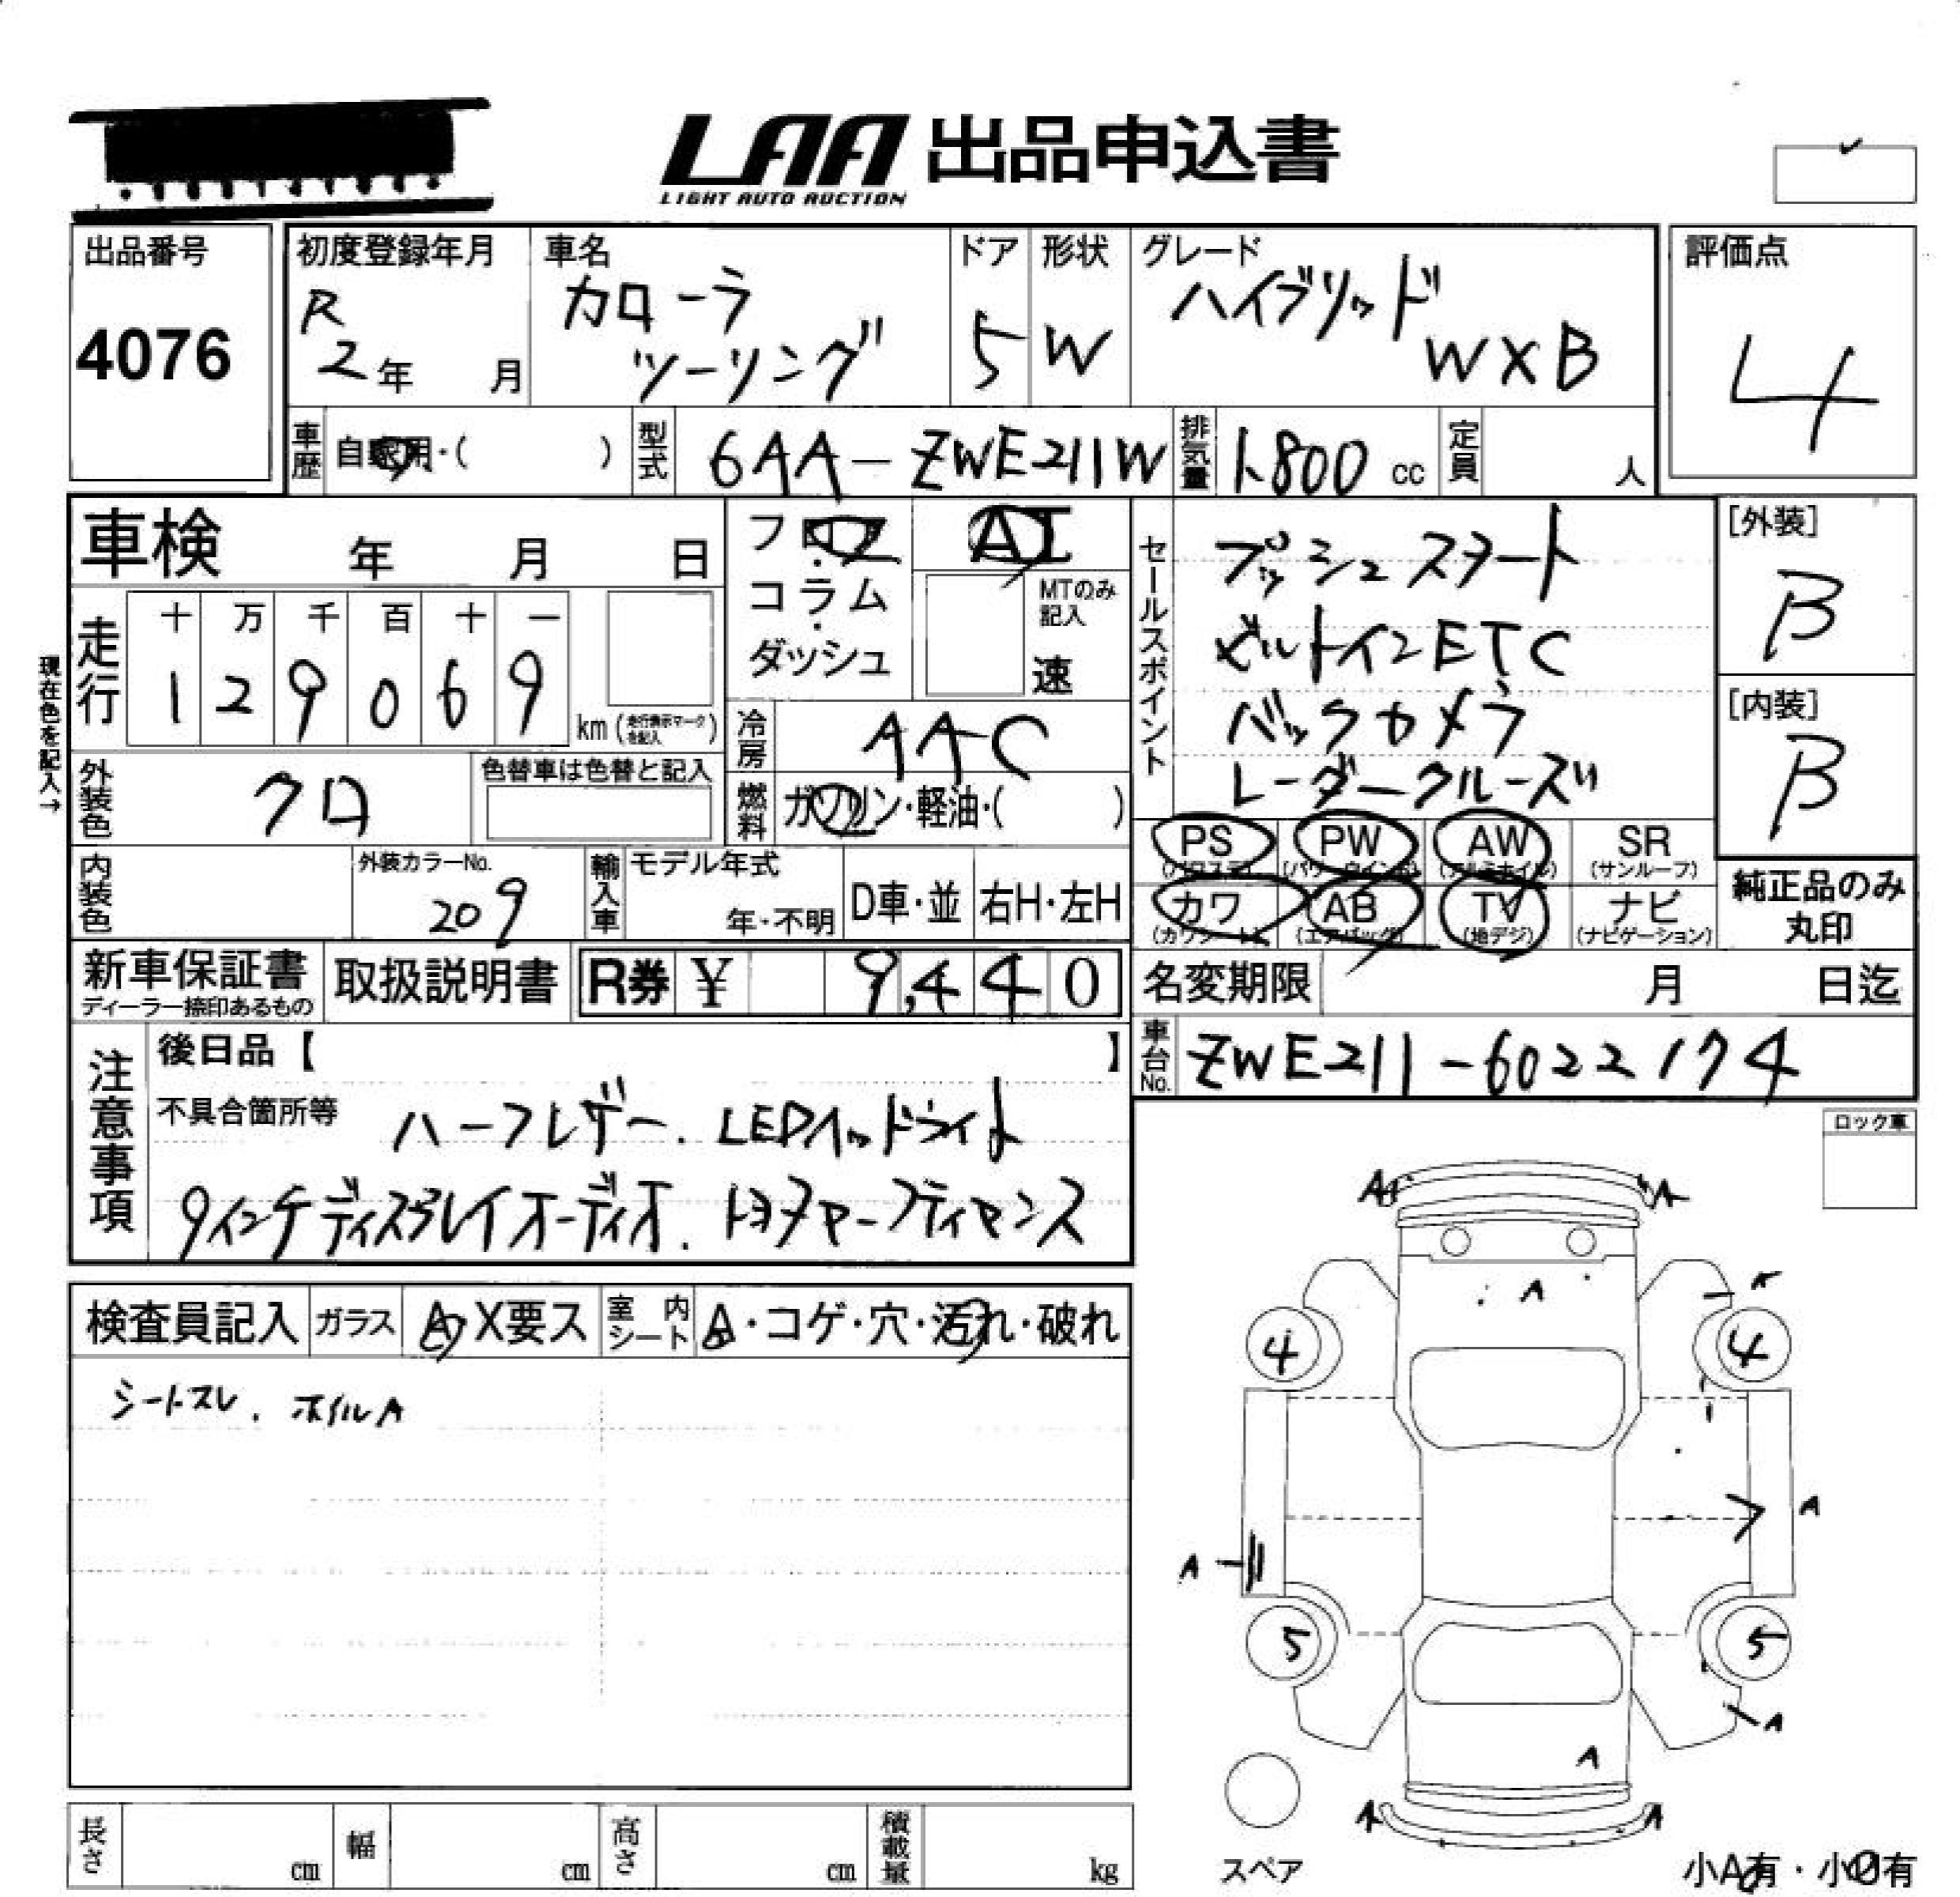 LAA 出品申込書
LIGHT AUTO AUCTION
出品番号
4076
初度登録年月
R
2年 月
車名
カローラ
ツーリング
ドア
5
形状
W
グレード
ハイブリッド
WXB
評価点
4
車歴 自家用・( )
型式 6AA-ZWE211W
排気量 1,800 cc
定員 人
車検 年 月 日
フロア
・
コラム
・
ダッシュ
AT
MTのみ
記入
速
セールスポイント
プッシュスタート
ビルトインETC
バックカメラ
レーダークルーズ
[外装]
B
[内装]
B
現在色を記入→
走行
十 万 千 百 十 一
1 2 9 0 6 9
km (走行表示マークを記入)
冷房 AAC
外装色 クロ
色替車は色替と記入
燃料 ガソリン・軽油・( )
PS (パワステ)
PW (パワーウインド)
AW (アルミホイル)
SR (サンルーフ)
カワ (カワシート)
AB (エアバッグ)
TV (地デジ)
ナビ (ナビゲーション)
純正品のみ
丸印
内装色
外装カラーNo.
209
輸入車
モデル年式
年・不明
D車・並
右H・左H
新車保証書
ディーラー捺印あるもの
取扱説明書
R券 ¥ 9,440
名変期限 月 日迄
車台No. ZWE211-6022174
注意事項
後日品【 】
不具合箇所等 ハーフレザー. LEDヘッドライト
9インチディスプレイオーディオ. トヨタセーフティセンス
ロック車
検査員記入
ガラス A X要ス
室内シート A・コゲ・穴・汚れ・破れ
シートスレ. ホイルA
A A
A
4 4
A
A
5 5
A
A
A A
スペア
小A有・小U有
長さ cm
幅 cm
高さ cm
積載量 kg